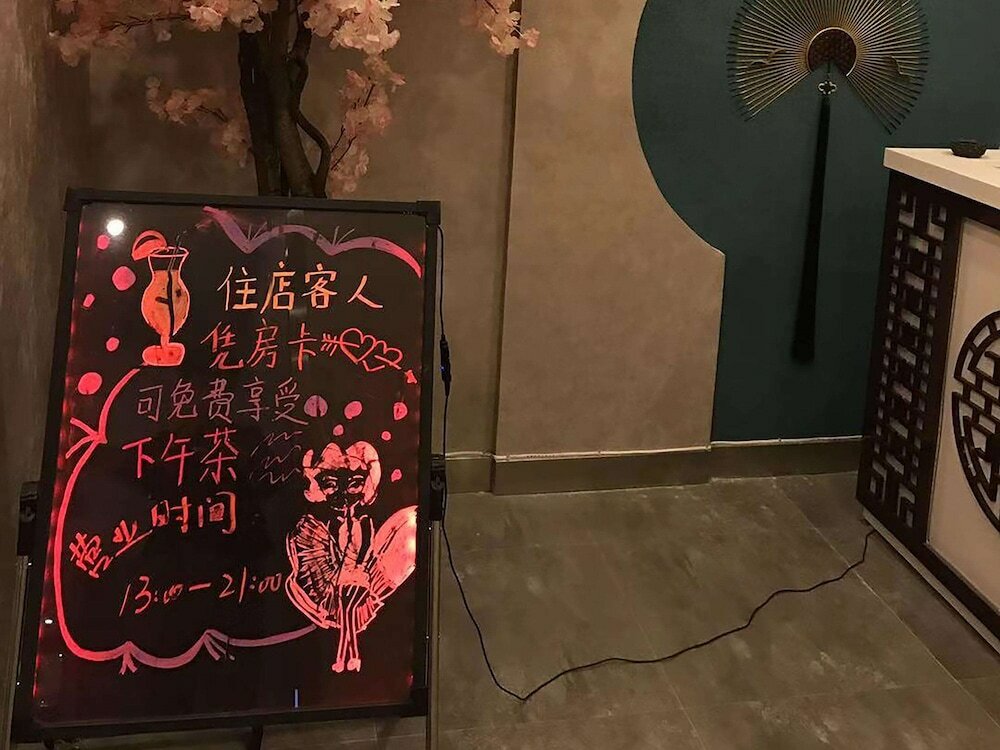 住店客人
凭房卡
可免费享受
下午茶
营业时间
13:00—21:00